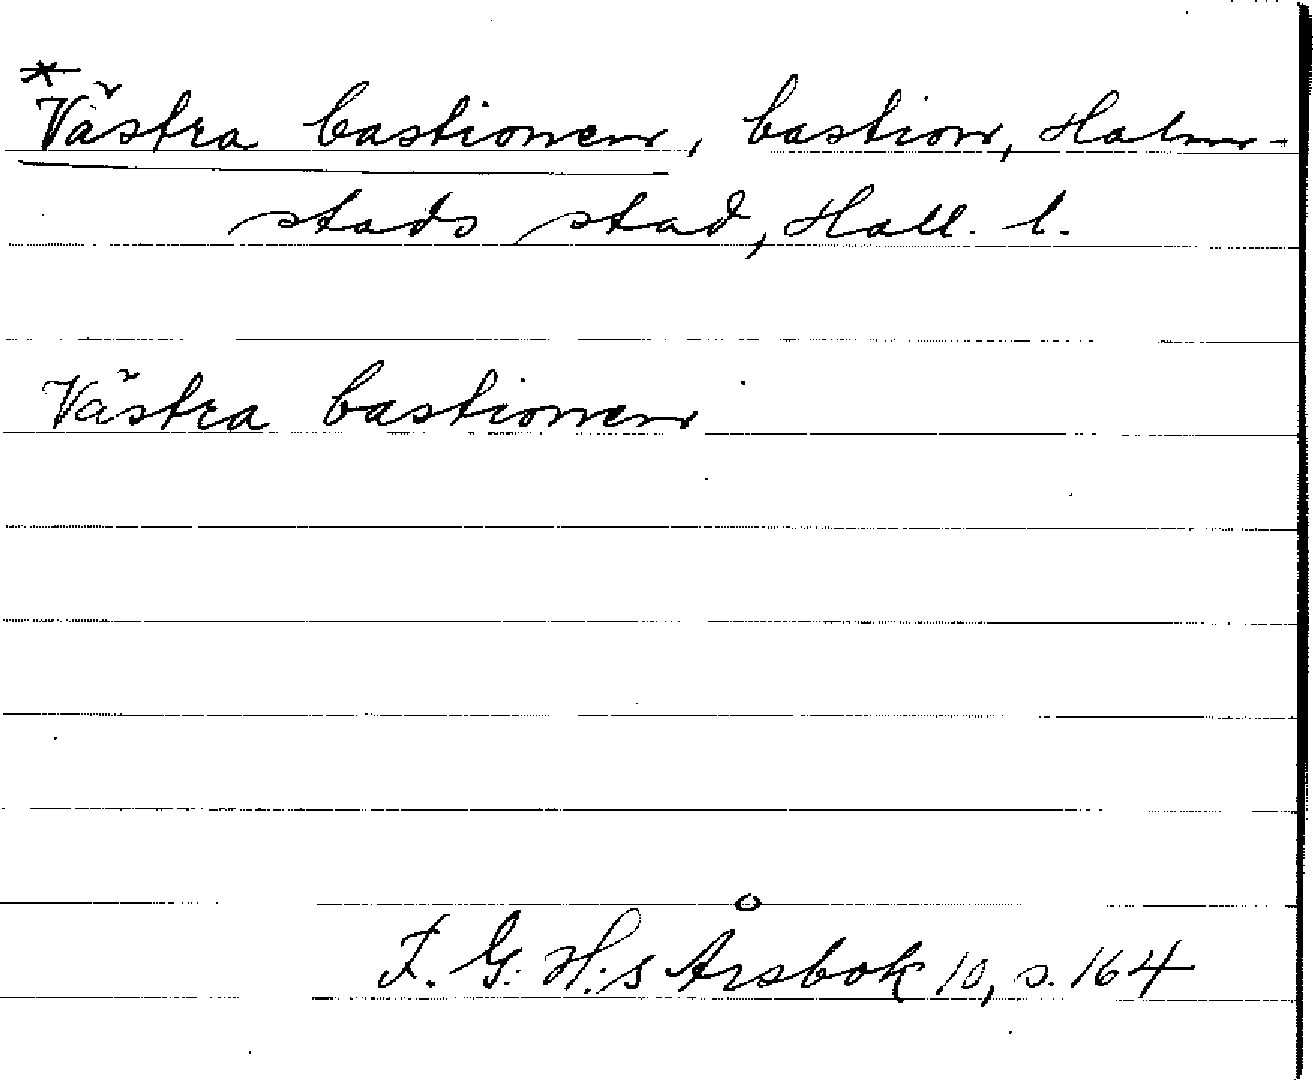 *Västra bastionen, bastion, Halm-
stads stad, Hall. l.
Västra bastionen
F. G. H:s Årsbok 10, s. 164